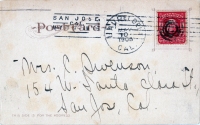 SAN JOSE
CAL.
Post Card
1906
CAL.
Mrs. C. Swenson
154 W. Santa Clara St
San Jose, Cal.